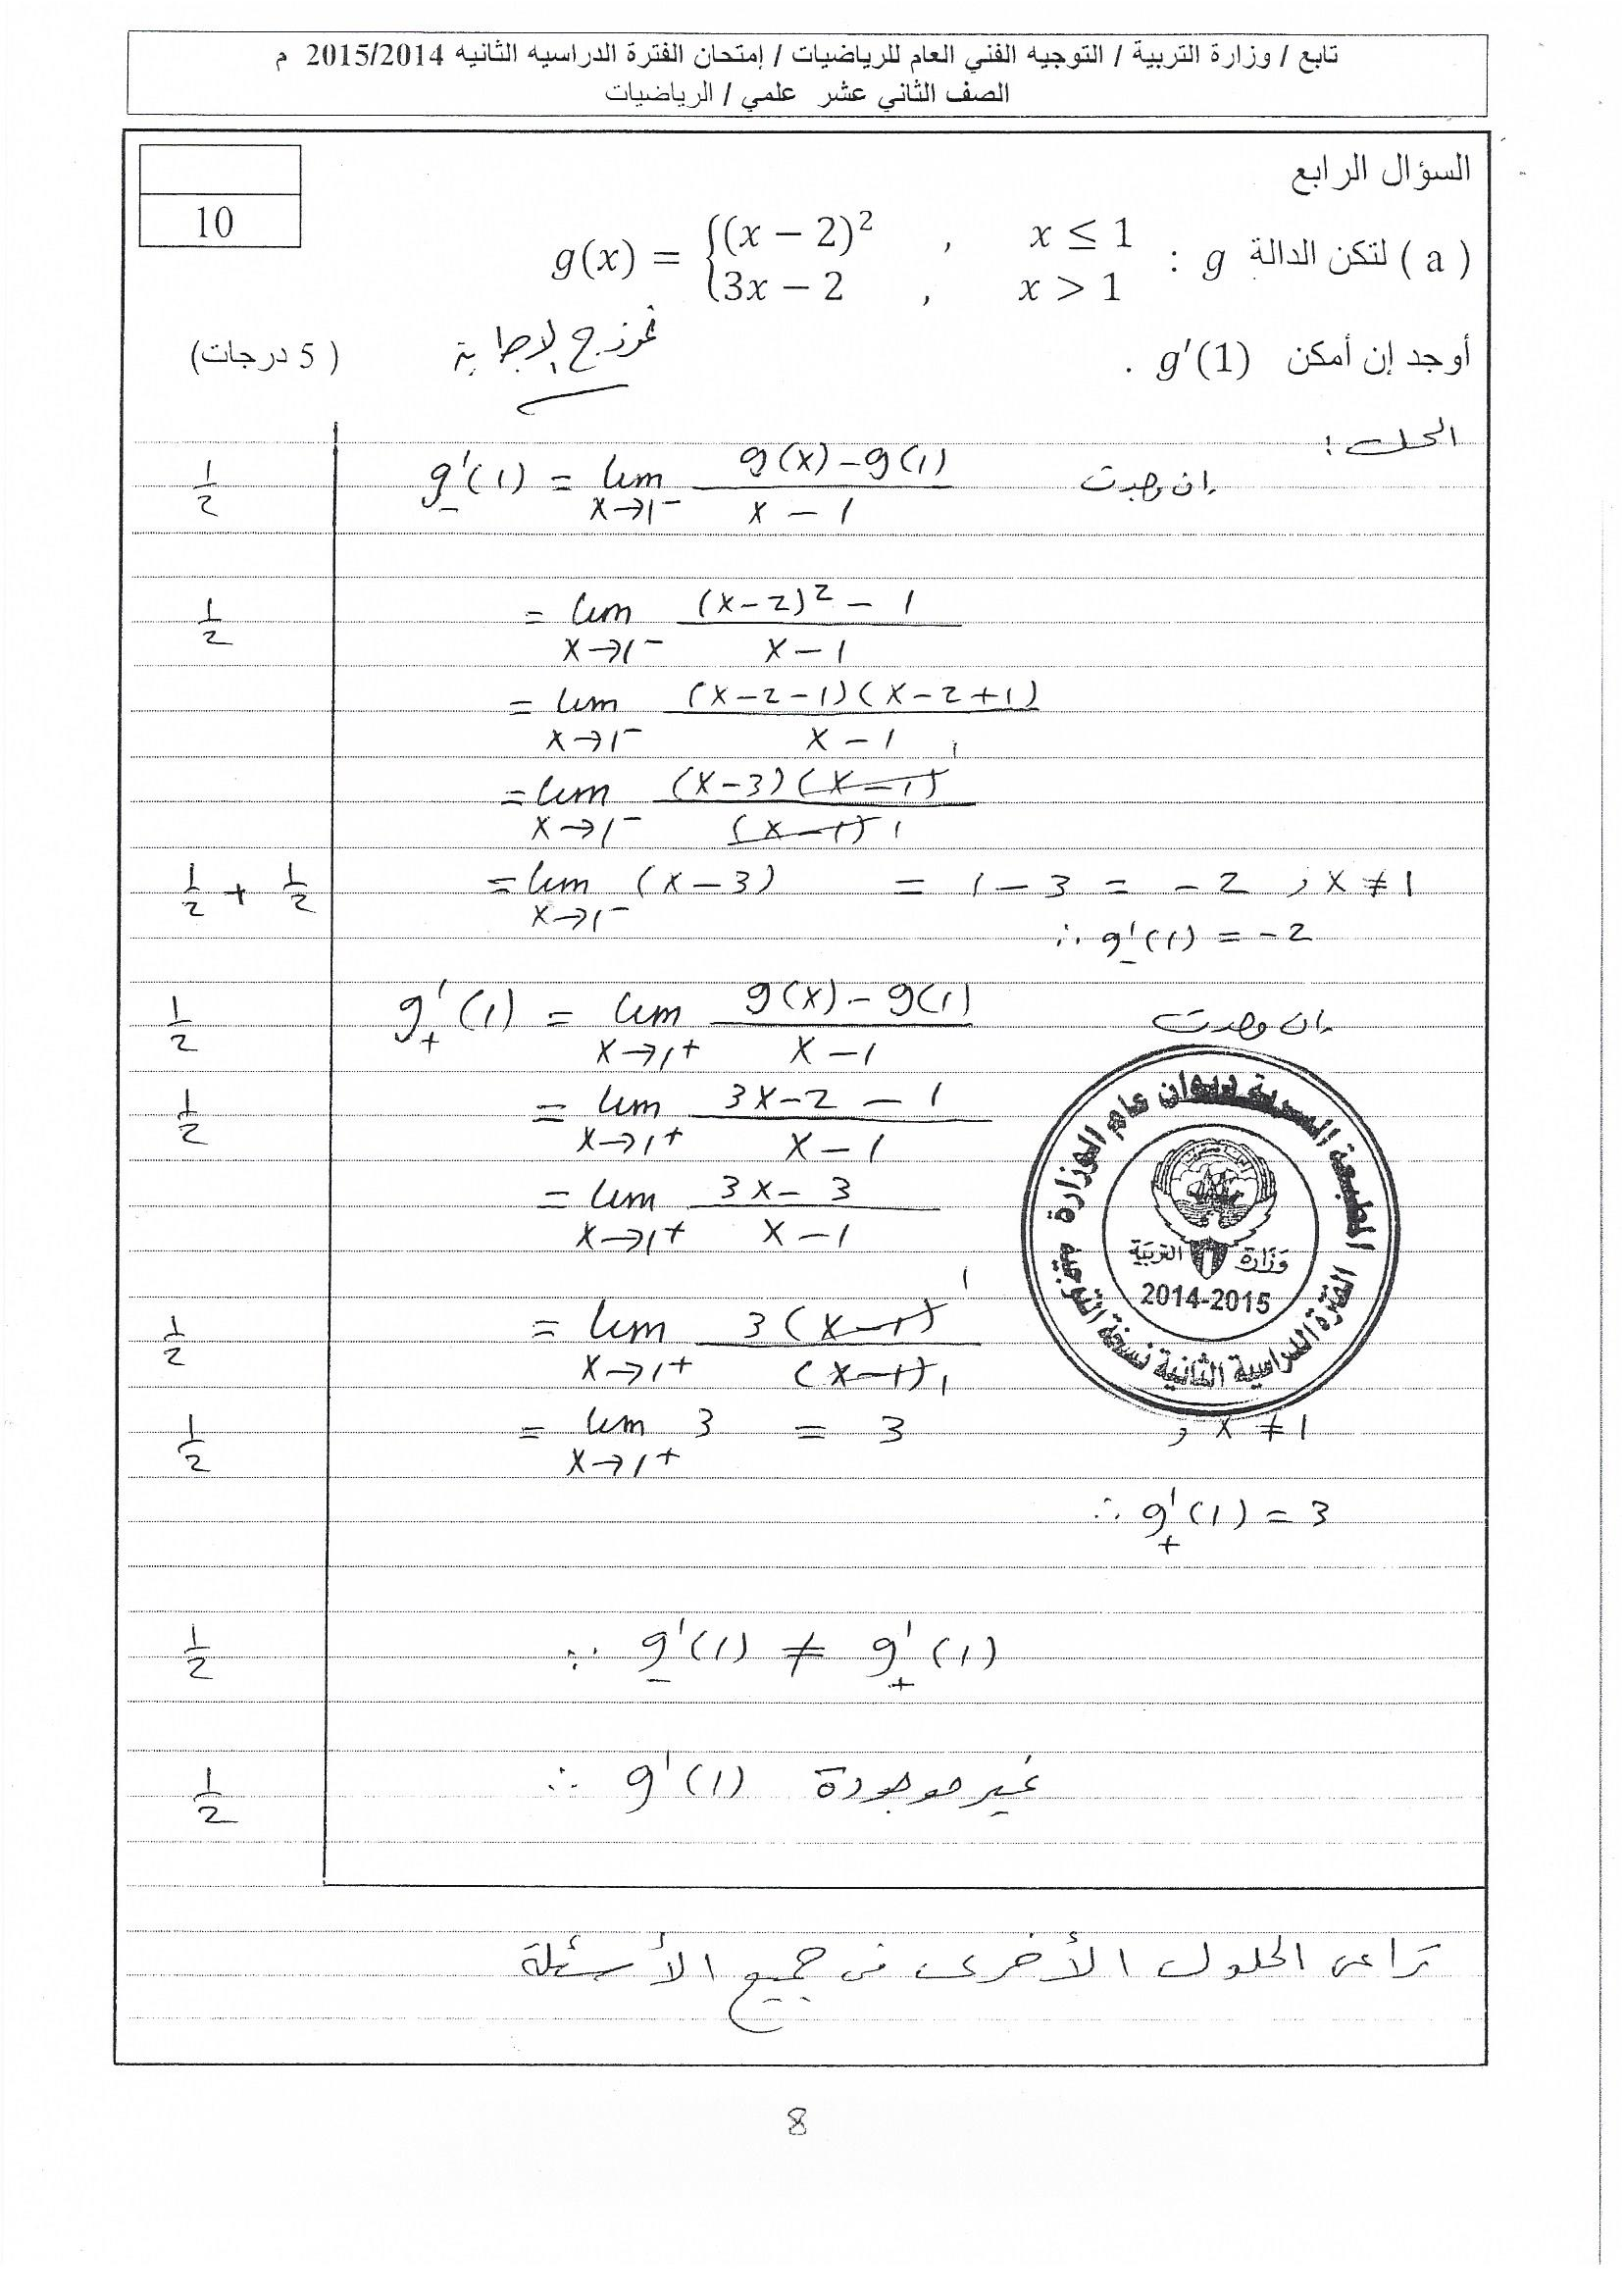 تابع / وزارة التربية / التوجيه الفني العام للرياضيات / إمتحان الفترة الدراسيه الثانيه 2015/2014 م
الصف الثاني عشر علمي / الرياضيات
السؤال الرابع
10
( a ) لتكن الدالة g : g(x) = { (x − 2)² , x ≤ 1
3x − 2 , x > 1
أوجد إن أمكن g′(1) .
( 5 درجات)
نموذج الإجابة
الحل :
1/2 g'₋(1) = lim x→1⁻ (g(x) − g(1)) / (x − 1) إن وجدت
1/2 = lim x→1⁻ ((x−2)² − 1) / (x − 1)
= lim x→1⁻ (x−2−1)(x−2+1) / (x − 1)
= lim x→1⁻ (x−3)(x−1) 1 / (x−1) 1
1/2 + 1/2 = lim x→1⁻ (x−3) = 1 − 3 = −2 , x ≠ 1
∴ g'₋(1) = −2
1/2 g'₊(1) = lim x→1⁺ (g(x) − g(1)) / (x − 1) إن وجدت
1/2 = lim x→1⁺ (3x−2 − 1) / (x − 1)
= lim x→1⁺ (3x − 3) / (x − 1)
1/2 = lim x→1⁺ 3(x−1) 1 / (x−1) 1
1/2 = lim x→1⁺ 3 = 3 , x ≠ 1
∴ g'₊(1) = 3
1/2 ∵ g'₋(1) ≠ g'₊(1)
1/2 ∴ g'(1) غير موجودة
المطبعة السرية ديوان عام الوزارة
الفترة الدراسية الثانية نسخة التوجيه
وزارة التربية
2014-2015
تراعى الحلول الأخرى في جميع الأسئلة
8